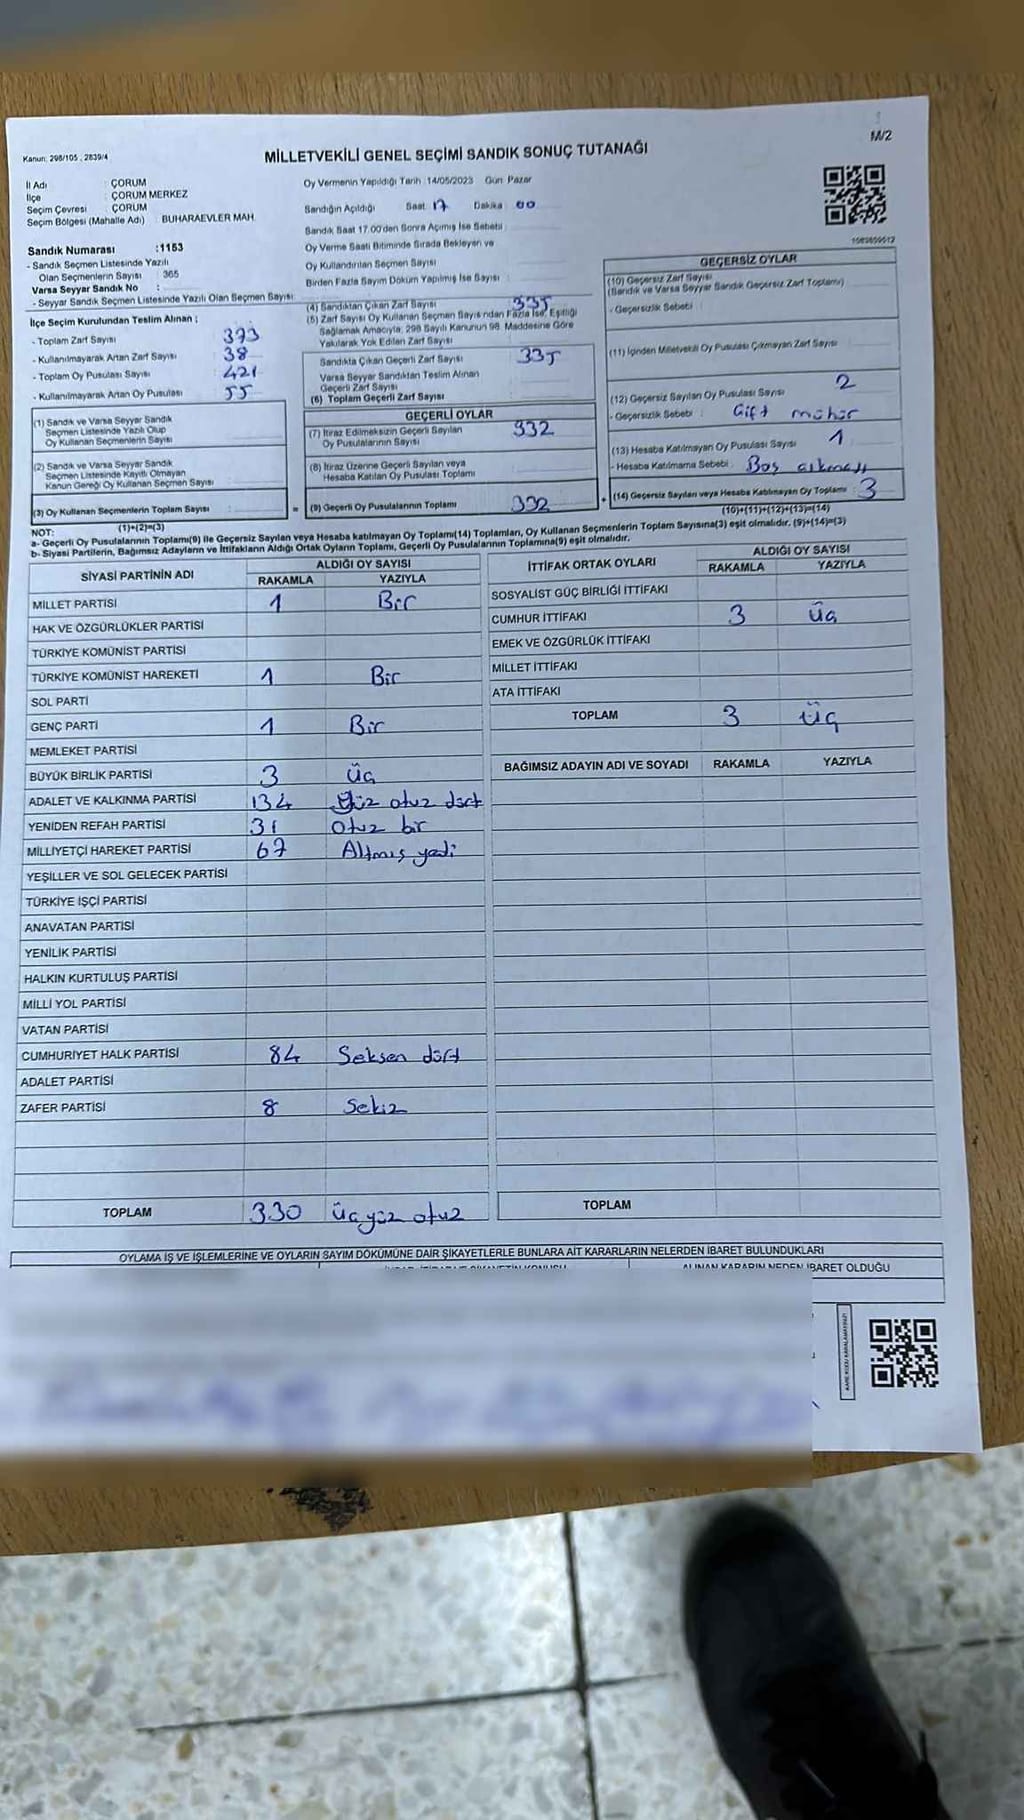 M/2
Kanun: 298/105 , 2839/4
MİLLETVEKİLİ GENEL SEÇİMİ SANDIK SONUÇ TUTANAĞI
İl Adı : ÇORUM
İlçe : ÇORUM MERKEZ
Seçim Çevresi : ÇORUM
Seçim Bölgesi (Mahalle Adı) : BUHARAEVLER MAH.
Sandık Numarası :1153
- Sandık Seçmen Listesinde Yazılı
Olan Seçmenlerin Sayısı : 365
Varsa Seyyar Sandık No :
- Seyyar Sandık Seçmen Listesinde Yazılı Olan Seçmen Sayısı:
İlçe Seçim Kurulundan Teslim Alınan ;
- Toplam Zarf Sayısı : 373
- Kullanılmayarak Artan Zarf Sayısı : 38
- Toplam Oy Pusulası Sayısı : 421
- Kullanılmayarak Artan Oy Pusulası : 55
(1) Sandık ve Varsa Seyyar Sandık
Seçmen Listesinde Yazılı Olup
Oy Kullanan Seçmenlerin Sayısı
(2) Sandık ve Varsa Seyyar Sandık
Seçmen Listesinde Kayıtlı Olmayan
Kanun Gereği Oy Kullanan Seçmen Sayısı :
(3) Oy Kullanan Seçmenlerin Toplam Sayısı :
(1)+(2)=(3)
Oy Vermenin Yapıldığı Tarih :14/05/2023 Gün: Pazar
Sandığın Açıldığı Saat: 17 Dakika : 00
Sandık Saat 17.00'den Sonra Açılmış İse Sebebi :
Oy Verme Saati Bitiminde Sırada Bekleyen ve
Oy Kullandırılan Seçmen Sayısı
Birden Fazla Sayım Döküm Yapılmış İse Sayısı :
(4) Sandıktan Çıkan Zarf Sayısı 335
(5) Zarf Sayısı Oy Kullanan Seçmen Sayısından Fazla İse, Eşitliği
Sağlamak Amacıyla; 298 Sayılı Kanunun 98. Maddesine Göre
Yakılarak Yok Edilen Zarf Sayısı
Sandıkta Çıkan Geçerli Zarf Sayısı : 335
Varsa Seyyar Sandıktan Teslim Alınan
Geçerli Zarf Sayısı
(6) Toplam Geçerli Zarf Sayısı
GEÇERLİ OYLAR
(7) İtiraz Edilmeksizin Geçerli Sayılan
Oy Pusulalarının Sayısı : 332
(8) İtiraz Üzerine Geçerli Sayılan veya
Hesaba Katılan Oy Pusulası Toplamı
= (9) Geçerli Oy Pusulalarının Toplamı : 332
GEÇERSİZ OYLAR
(10) Geçersiz Zarf Sayısı
(Sandık ve Varsa Seyyar Sandık Geçersiz Zarf Toplamı)
- Geçersizlik Sebebi :
(11) İçinden Milletvekili Oy Pusulası Çıkmayan Zarf Sayısı
(12) Geçersiz Sayılan Oy Pusulası Sayısı : 2
- Geçersizlik Sebebi : Çift mühür
(13) Hesaba Katılmayan Oy Pusulası Sayısı : 1
- Hesaba Katılmama Sebebi : Boş çıkması
+ (14) Geçersiz Sayılan veya Hesaba Katılmayan Oy Toplamı : 3
(10)+(11)+(12)+(13)=(14)
NOT:
a- Geçerli Oy Pusulalarının Toplamı(9) ile Geçersiz Sayılan veya Hesaba katılmayan Oy Toplamı(14) Toplamları, Oy Kullanan Seçmenlerin Toplam Sayısına(3) eşit olmalıdır. (9)+(14)=(3)
b- Siyasi Partilerin, Bağımsız Adayların ve İttifakların Aldığı Ortak Oyların Toplamı, Geçerli Oy Pusulalarının Toplamına(9) eşit olmalıdır.
SİYASİ PARTİNİN ADI ALDIĞI OY SAYISI
RAKAMLA YAZIYLA
MİLLET PARTİSİ 1 Bir
HAK VE ÖZGÜRLÜKLER PARTİSİ
TÜRKİYE KOMÜNİST PARTİSİ
TÜRKİYE KOMÜNİST HAREKETİ 1 Bir
SOL PARTİ
GENÇ PARTİ 1 Bir
MEMLEKET PARTİSİ
BÜYÜK BİRLİK PARTİSİ 3 Üç
ADALET VE KALKINMA PARTİSİ 134 Yüz otuz dört
YENİDEN REFAH PARTİSİ 31 Otuz bir
MİLLİYETÇİ HAREKET PARTİSİ 67 Altmış yedi
YEŞİLLER VE SOL GELECEK PARTİSİ
TÜRKİYE İŞÇİ PARTİSİ
ANAVATAN PARTİSİ
YENİLİK PARTİSİ
HALKIN KURTULUŞ PARTİSİ
MİLLİ YOL PARTİSİ
VATAN PARTİSİ
CUMHURİYET HALK PARTİSİ 84 Seksen dört
ADALET PARTİSİ
ZAFER PARTİSİ 8 Sekiz
TOPLAM 330 Üçyüz otuz
İTTİFAK ORTAK OYLARI ALDIĞI OY SAYISI
RAKAMLA YAZIYLA
SOSYALİST GÜÇ BİRLİĞİ İTTİFAKI
CUMHUR İTTİFAKI 3 Üç
EMEK VE ÖZGÜRLÜK İTTİFAKI
MİLLET İTTİFAKI
ATA İTTİFAKI
TOPLAM 3 Üç
BAĞIMSIZ ADAYIN ADI VE SOYADI RAKAMLA YAZIYLA
TOPLAM
OYLAMA İŞ VE İŞLEMLERİNE VE OYLARIN SAYIM DÖKÜMÜNE DAİR ŞİKAYETLERLE BUNLARA AİT KARARLARIN NELERDEN İBARET BULUNDUKLARI
ALINAN KARARIN NEDEN İBARET OLDUĞU